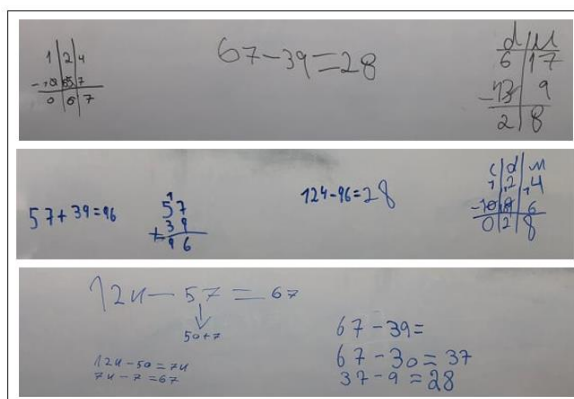 1 2 4
67-39=28
d u
6 17
9
2 8
0 6 7
57+39=96
57
+39
96
124-96=28
c d u
0 2 8
124-57=67
50+7
124-50=74
74-7=67
67-39=
67-30=37
37-9=28